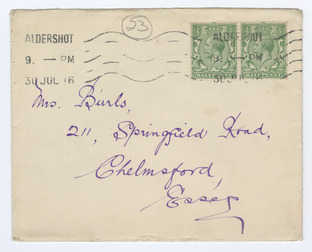 53
ALDERSHOT ALDERSHOT
9. – PM
30 JUL 16 30 JUL
HALFPENNY HALFPENNY
Mrs. Burls,
211, Springfield Road,
Chelmsford,
Essex